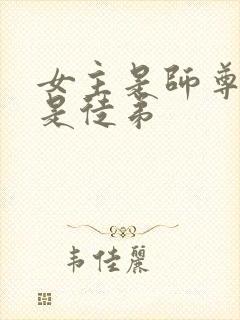 女主是師尊
是徒弟
韦佳麗